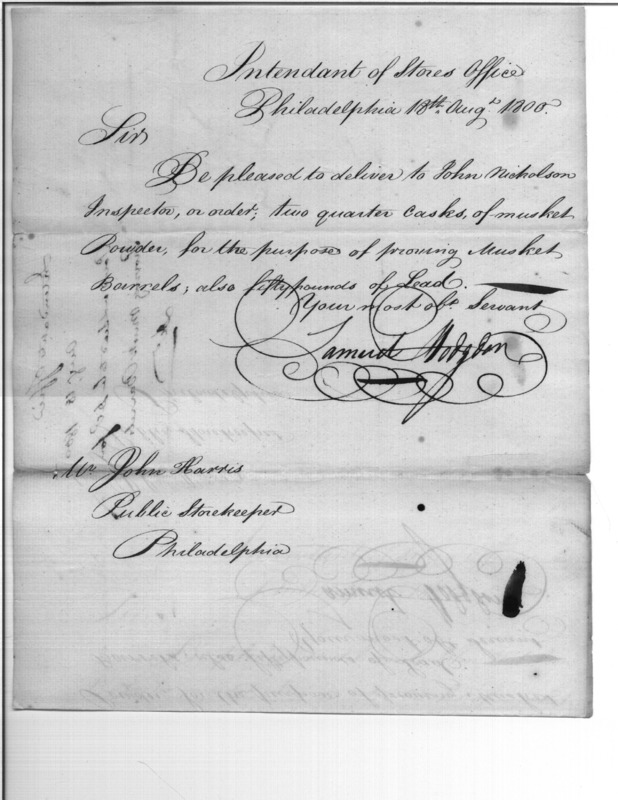 Intendant of Stores Office
Philadelphia 18th Augt 1800.
Sir
Be pleased to deliver to John Nicholson
Inspector, or order; two quarter casks, of musket
Powder, for the purpose of proving Musket
Barrels; also fifty pounds of Lead.
Your most obt Servant
Samuel Hodgdon
Mr John Harris
Public Storekeeper
Philadelphia